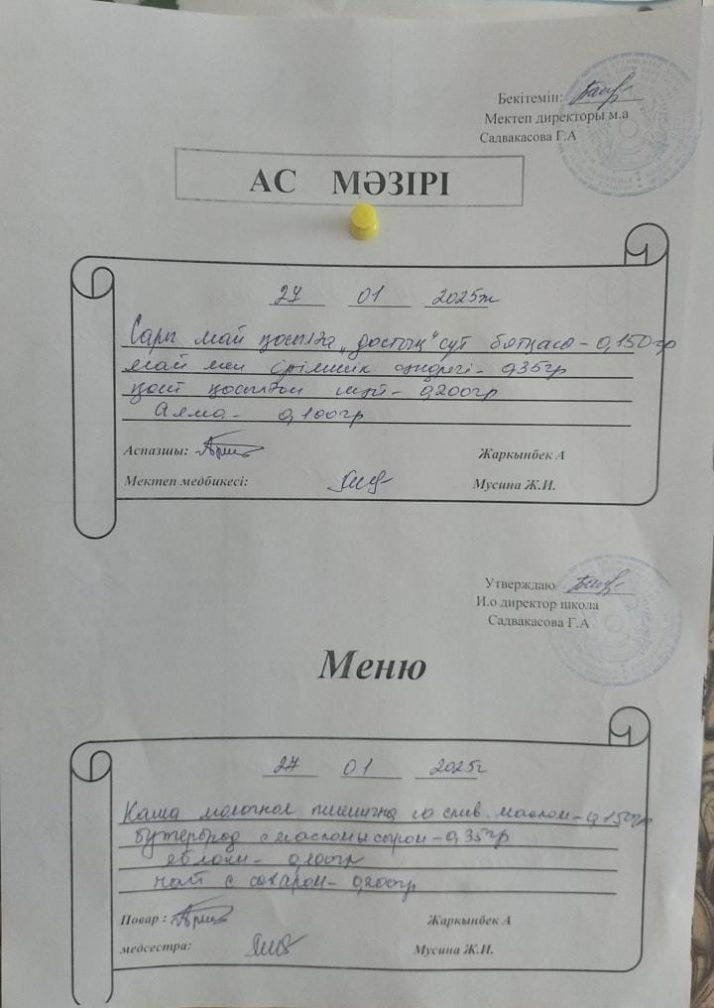 Бекітемін:
Мектеп директоры м.а
Садвакасова Г.А
АС МӘЗІРІ
27 01 2025ж
Сары май қоспаға „достық" сүт ботқасы - 0,150гр
май мен ірімшік - 0,35гр
қант қосылған шәй - 0,200гр
Алма - 0,100гр
Аспазшы: Жаркынбек А
Мектеп медбикесі: Мусина Ж.И.
Утверждаю
И.о директор школа
Садвакасова Г.А
Меню
27 01 2025г
Каша молочная пшенична со слив. маслом - 0,150гр
бутерброд с маслом и сыром - 0,35гр
яблоки - 0,100гр
чай с сахаром - 0,200гр
Повар : Жаркынбек А
медсестра: Мусина Ж.И.